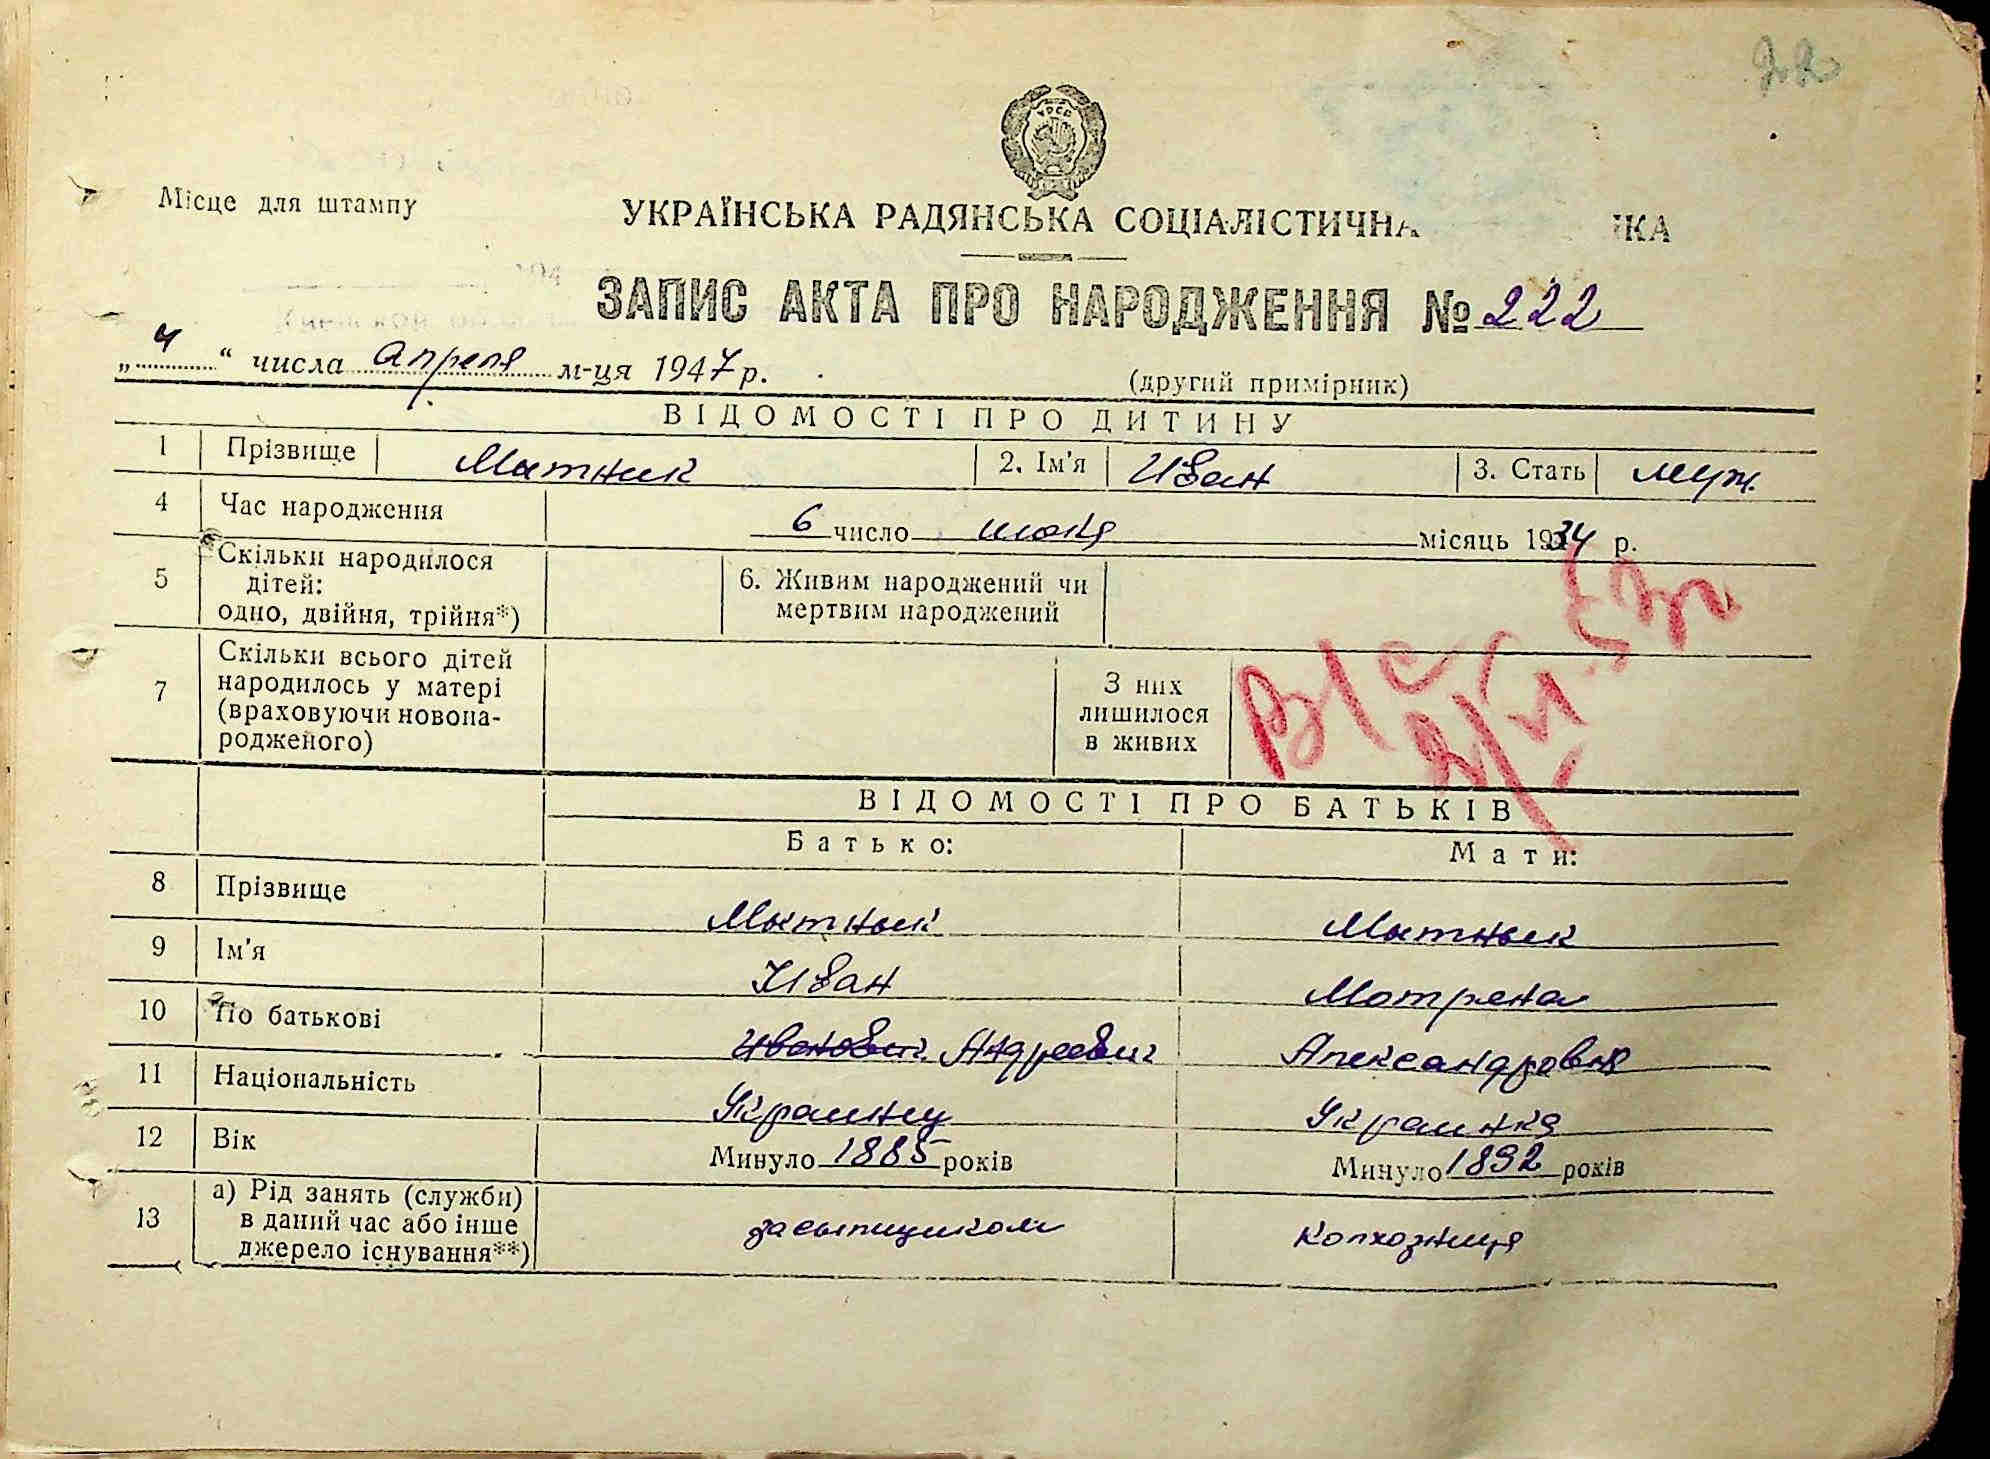 22
УРСР
Місце для штампу
УКРАЇНСЬКА РАДЯНСЬКА СОЦІАЛІСТИЧНА ІКА
ЗАПИС АКТА ПРО НАРОДЖЕННЯ № 222
„ 4 “ числа апреля м-ця 1947 р.
(другий примірник)
ВІДОМОСТІ ПРО ДИТИНУ
1 Прізвище Матник 2. Ім'я Иван 3. Стать муж.
4 Час народження 6 число июня місяць 1934 р.
5 Скільки народилося
дітей:
одно, двійня, трійня*)
6. Живим народжений чи
мертвим народжений
7 Скільки всього дітей
народилось у матері
(враховуючи новона-
родженого)
З них
лишилося
в живих
В/С
ВІДОМОСТІ ПРО БАТЬКІВ
Батько: Мати:
8 Прізвище Матник Матник
9 Ім'я Иван Мотрена
10 По батькові Иванович Андреевич Александровня
11 Національність Украинец Украинка
12 Вік Минуло 1885 років Минуло 1892 років
13 а) Рід занять (служби)
в даний час або інше
джерело існування**)
засыпщиком колхозница